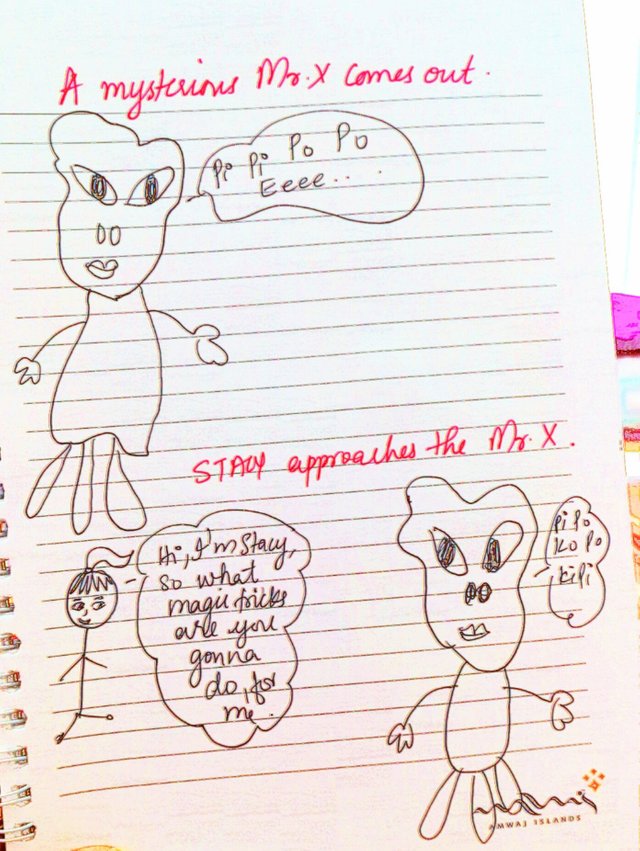 A mysterious Mr.X comes out.
Pi Pi Po Po
Eeee....
STACY approaches the Mr.X.
Hi, I'm Stacy,
So what
magic tricks
are you
gonna
do, for
me.
Pi Po
Ko Po
KiPi
AMWAJ ISLANDS